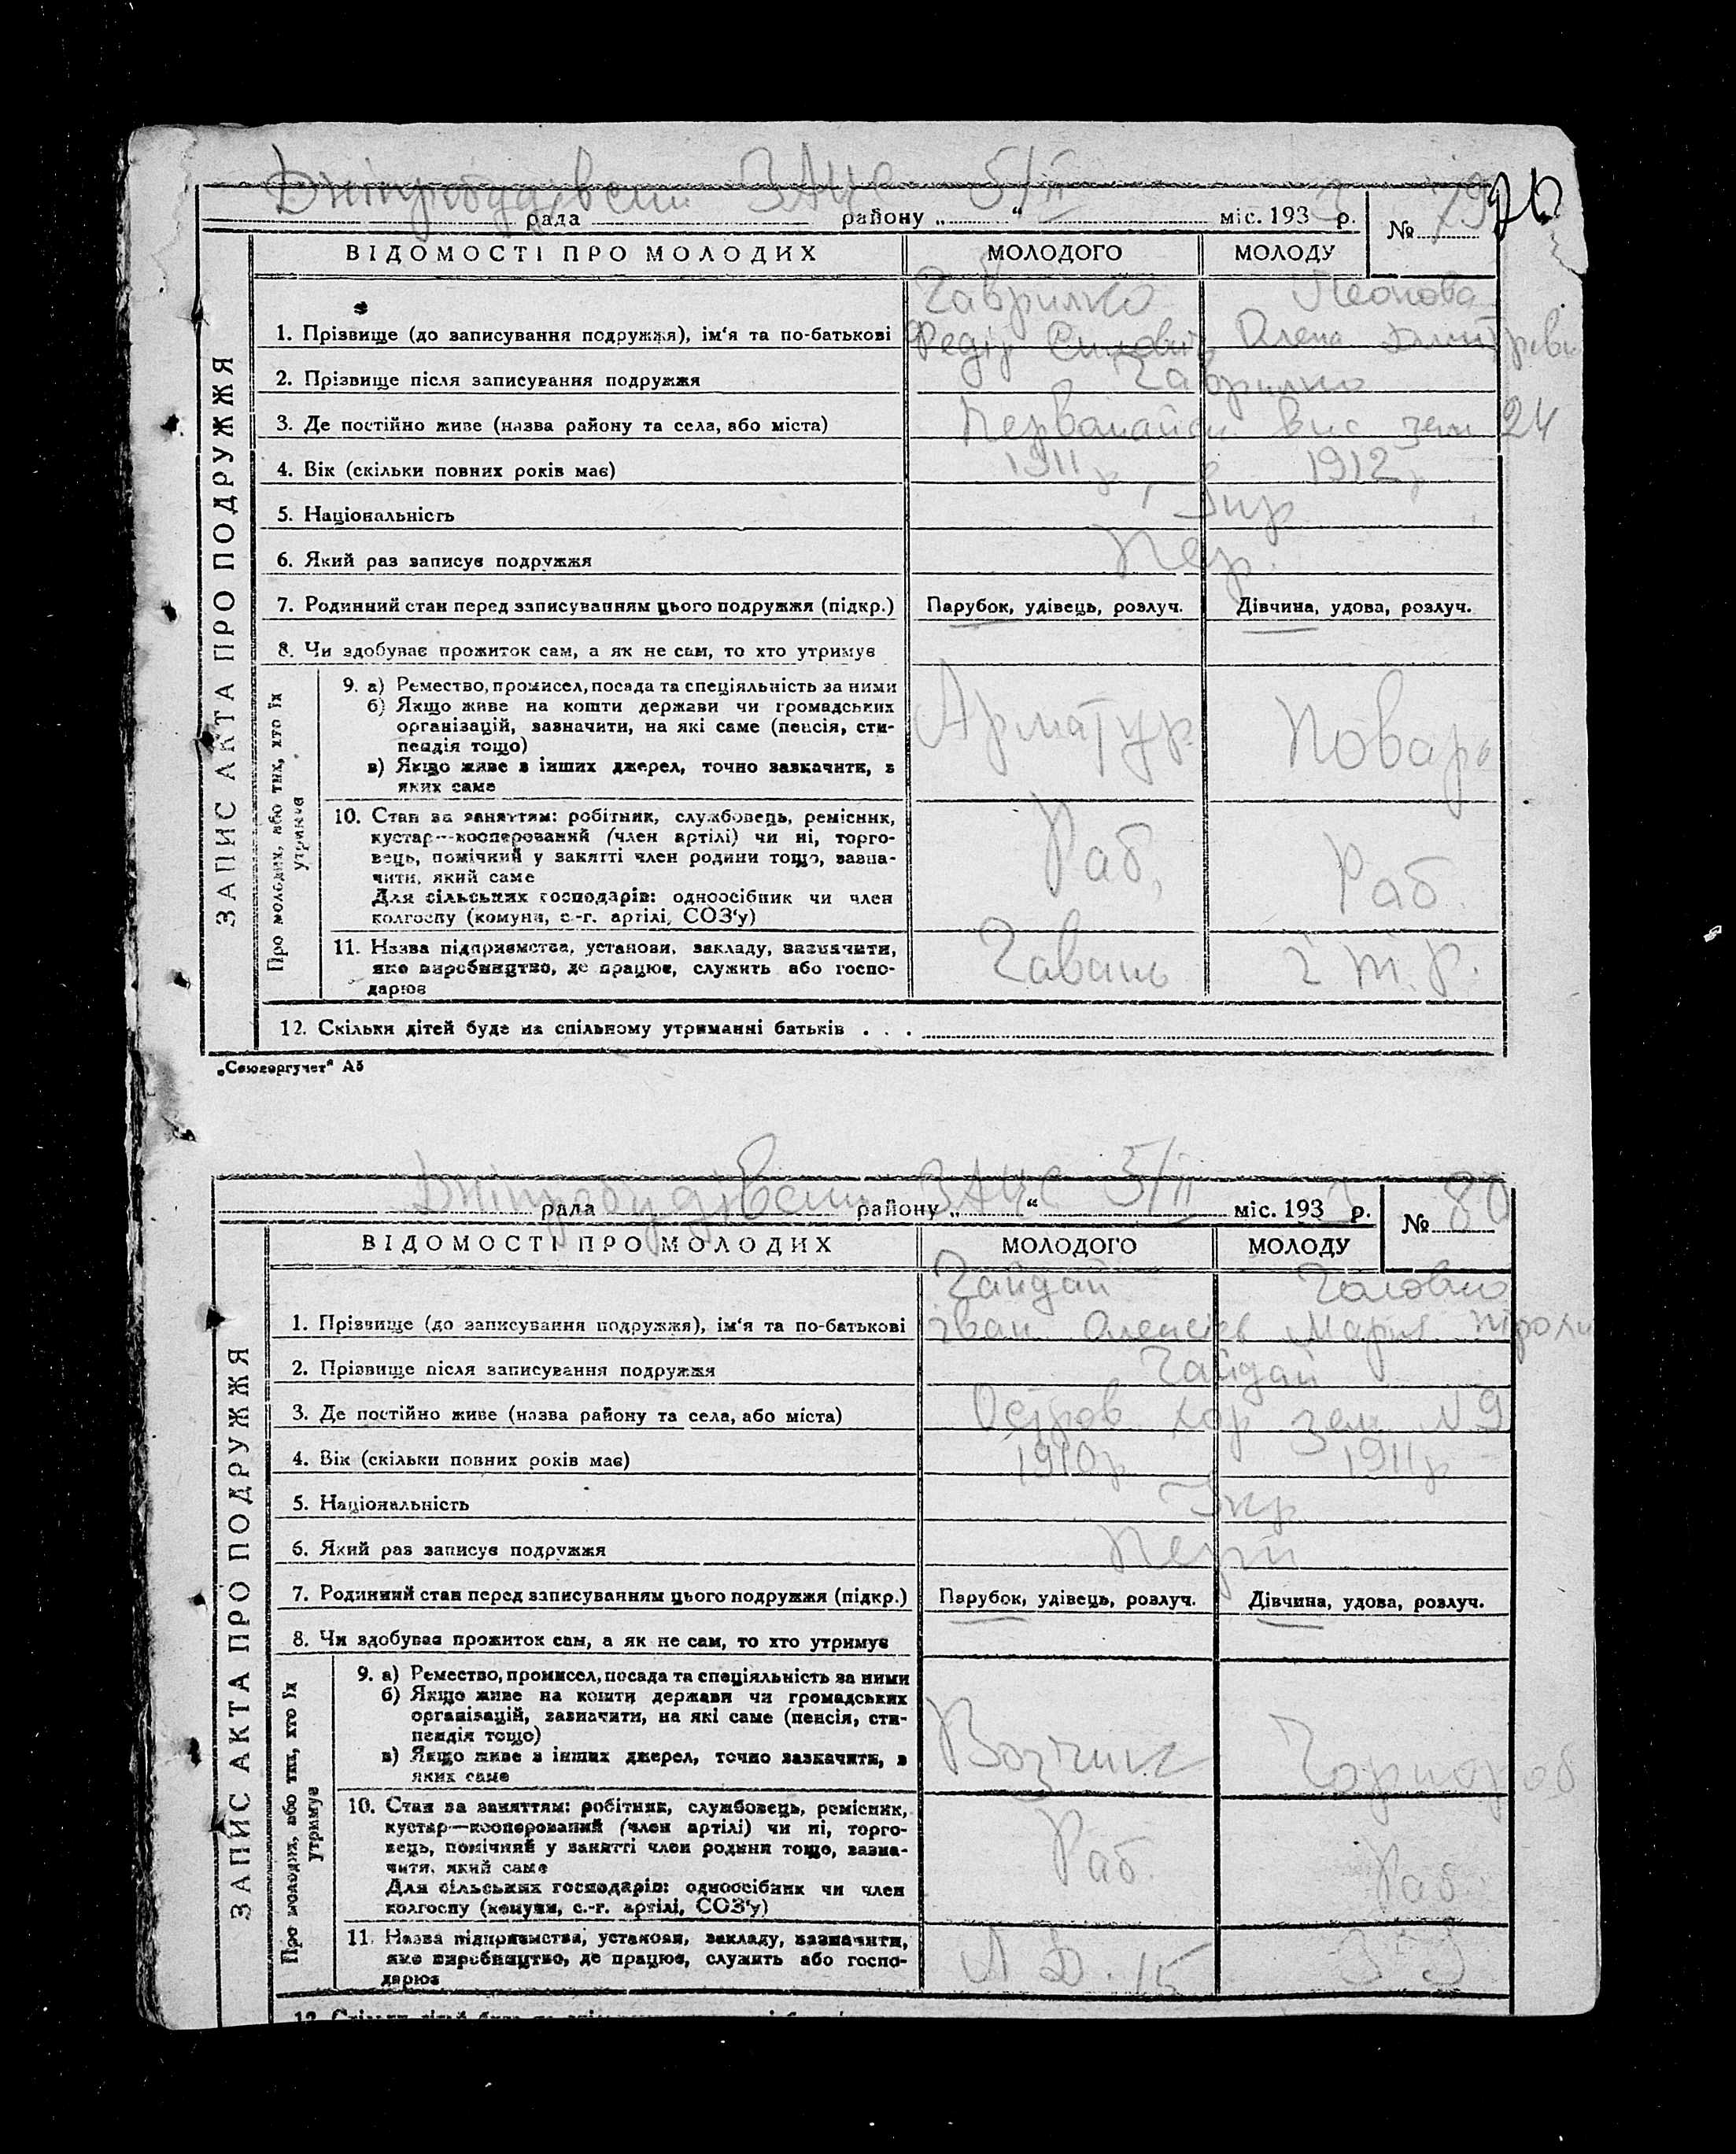 Дніпробудівськ ЗАЦС 5/II
рада района „ “ міс. 1933 р. № 79
ВІДОМОСТІ ПРО МОЛОДИХ МОЛОДОГО МОЛОДУ
ЗАПИС АКТА ПРО ПОДРУЖЖЯ
Гаврилко
1. Прізвище (до записування подружжя), ім‘я та по-батькові Федір Олена
2. Прізвище після записування подружжя Гаврилко
3. Де постійно живе (назва району та села, або міста) Первомайськ. вис зем 24
4. Вік (скільки повних років має) 1911 р 1912 р
5. Національність Укр
6. Який раз записує подружжя Пер.
7. Родинний стан перед записуванням цього подружжя (підкр.) Парубок, удівець, розлуч. Дівчина, удова, розлуч.
8. Чи здобуває прожиток сам, а як не сам, то хто утримує
Про молодих, або тих, хто їх утримує
9. а) Ремество, промисел, посада та спеціяльність за ними
б) Якщо живе на кошти держави чи громадських
організацій, зазначити, на які саме (пенсія, сти-
пендія тощо)
в) Якщо живе з інших джерел, точно зазначити, з
яких саме
Арматур. Повар
10. Стан за заняттям: робітник, службовець, ремісник,
кустар—кооперований (член артілі) чи ні, торго-
вець, помічний у занятті член родини тощо, зазна-
чити, який саме
Для сільських господарів: одноосібник чи член
колгоспу (комуни, с.-г. артілі, СОЗ‘у)
Раб. Раб.
11. Назва підприємства, установи, закладу, зазначити,
яке виробництво, де працює, служить або госпо-
дарює
Гавань
12. Скільки дітей буде на спільному утриманні батьків . . .
„Союзоргучет“ А5
Дніпробудівськ ЗАЦС 5/II
рада району „ “ міс. 193 р. № 80
ВІДОМОСТІ ПРО МОЛОДИХ МОЛОДОГО МОЛОДУ
ЗАПИС АКТА ПРО ПОДРУЖЖЯ
Гайдай Головко
1. Прізвище (до записування подружжя), ім‘я та по-батькові Іван Олексієв Марія
2. Прізвище після записування подружжя Гайдай
3. Де постійно живе (назва району та села, або міста) Острів хор зем N 9
4. Вік (скільки повних років має) 1910 р 1911 р
5. Національність Укр
6. Який раз записує подружжя Перш
7. Родинний стан перед записуванням цього подружжя (підкр.) Парубок, удівець, розлуч. Дівчина, удова, розлуч.
8. Чи здобуває прожиток сам, а як не сам, то хто утримує
Про молодих, або тих, хто їх утримує
9. а) Ремество, промисел, посада та спеціяльність за ними
б) Якщо живе на кошти держави чи громадських
організацій, зазначити, на які саме (пенсія, сти-
пендія тощо)
в) Якщо живе з інших джерел, точно зазначити, з
яких саме
Возчик Чорнороб
10. Стан за заняттям: робітник, службовець, ремісник,
кустар—кооперований (член артілі) чи ні, торго-
вець, помічний у занятті член родини тощо, зазна-
чити, який саме
Для сільських господарів: одноосібник чи член
колгоспу (комуни, с.-г. артілі, СОЗ‘у)
Раб. Раб.
11. Назва підприємства, установи, закладу, зазначити,
яке виробництво, де працює, служить або госпо-
дарює
Л Д. 15